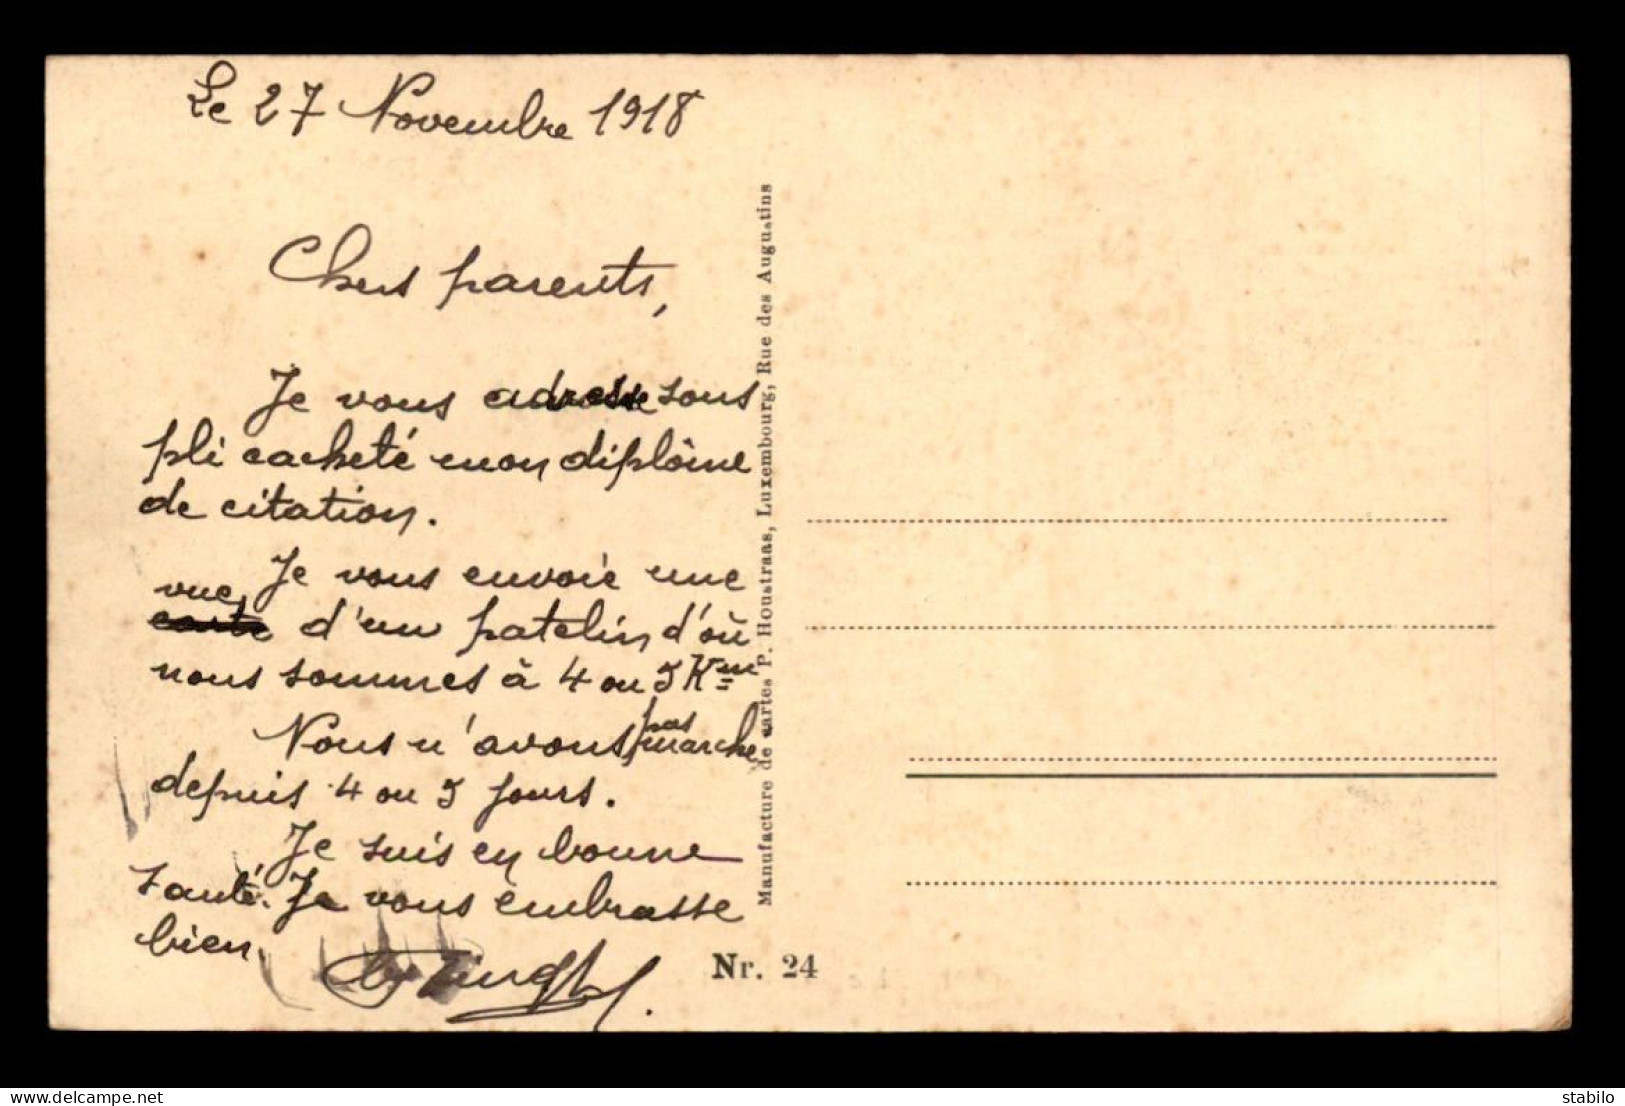 Le 27 Novembre 1918
Chers parents,
Je vous adresse sous
pli cacheté mon diplôme
de citation.
Je vous envoie une
vue
carte d'un patelin d'où
nous sommes à 4 ou 5 Km
pas
Nous n'avons marché
depuis 4 ou 5 jours.
Je suis en bonne
santé. Je vous embrasse
bien
Manufacture de cartes P. Houstraas, Luxembourg, Rue des Augustins
Nr. 24
delcampe.net
stabilo